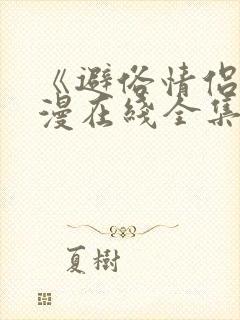 《避俗情侣
漫在綫全集
夏樹